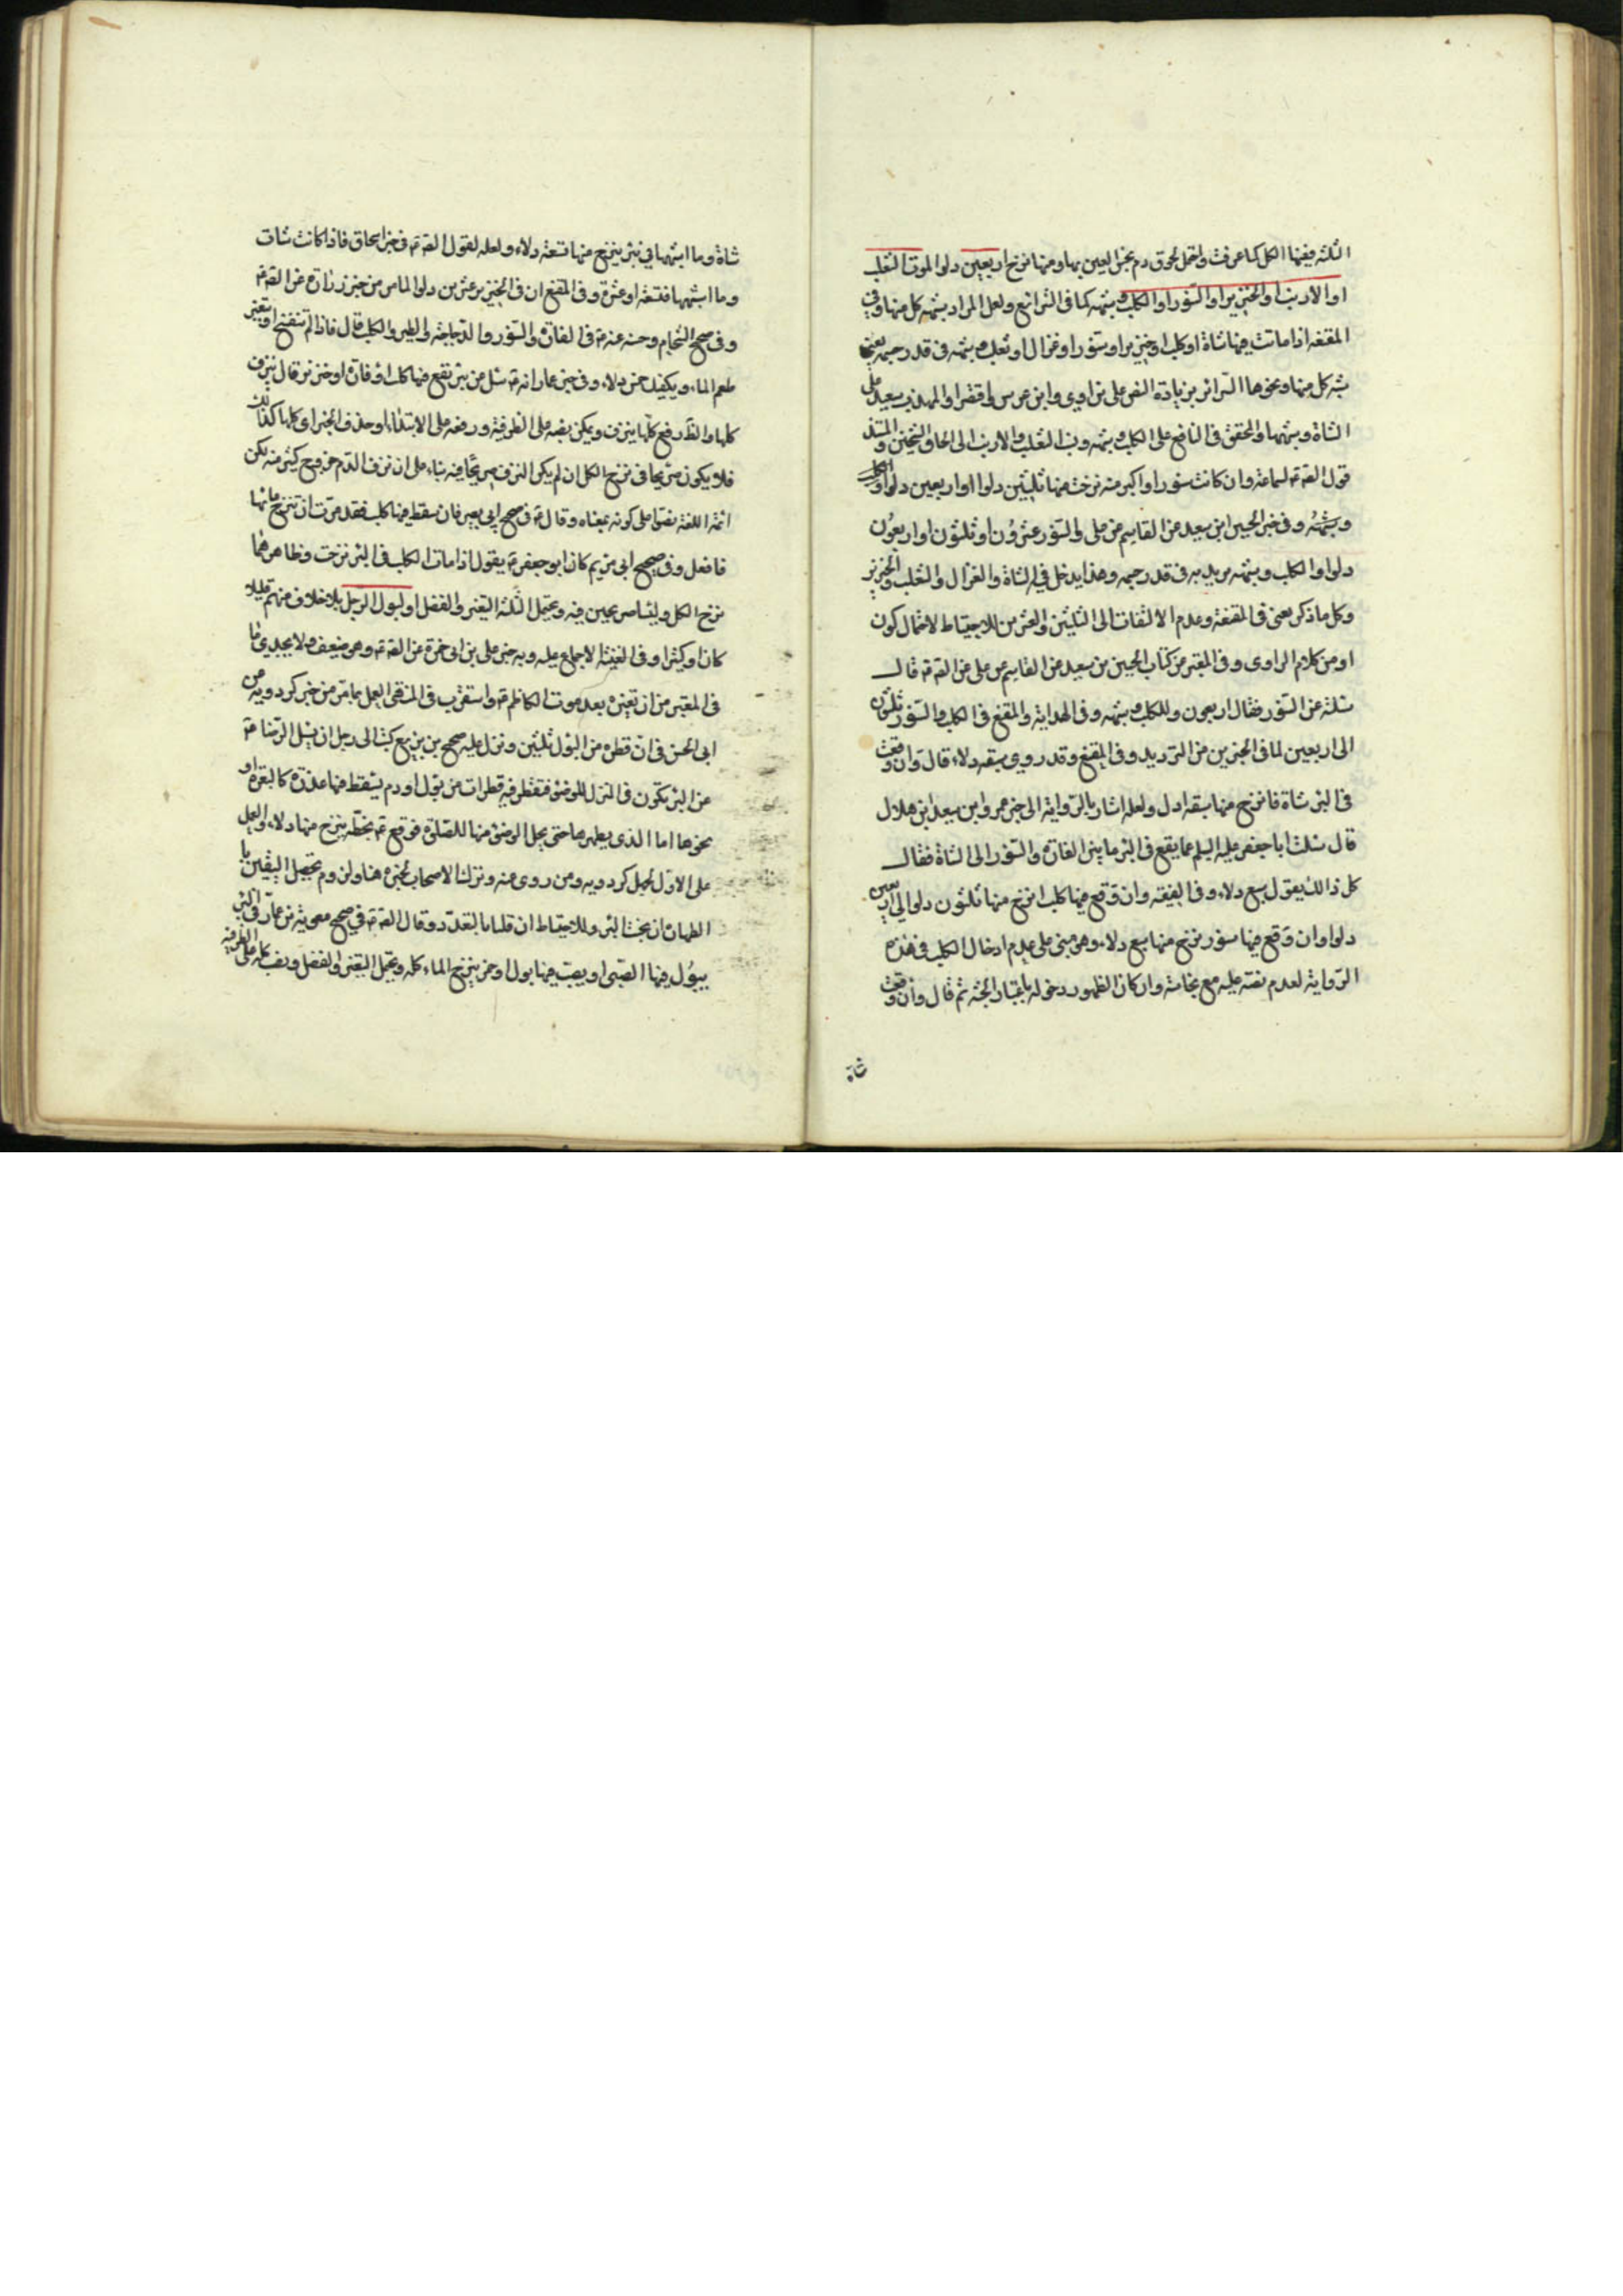 الثلثة ففيها الكل كما عرفت واحتمل لحوق دم نجس العين بها ومنها نزح اربعين دلوا لموت الثعلب
او الارنب او الخنزير او السنور او الكلب وشبهه كما في الشرائع ولعل المراد بشبهه كل منها وفي
المقنعة اذا ماتت فيها شاة او كلب او خنزير او سنور او غزال او ثعلب وشبهه في قدر جسمه يعني
شبه كل منها ونحوها السرائر بزيادة النص على ابن اوى وابن عرس واقتصر المهذب على
الشاة وشبهها والمحقق في النافع على الكلب وشبهه ونسب الثعلب والارنب الى الحاق الشيخين والمستند
قول الصادق ع لسماعة وان كانت سنورا او اكبر منه نزحت منها ثلثين دلوا او اربعين دلوا
وشبهه وفي خبر الحسين ابن سعيد عن القاسم عن علي والسنور عشرون او ثلثون او اربعون
دلوا والكلب وشبهه يريد به في قدر جسمه وهذا يدخل فيه الشاة والغزال والثعلب والخنزير
وكل ما ذكر يعني في المقنعة وعدم الالتفات الى الثلثين والعشرين للاحتياط لاحتمال كون
او من كلام الراوي وفي المعتبر من كتاب الحسين بن سعيد عن القاسم عن علي عن الصادق ع قال
سئلته عن السنور فقال اربعون وللكلب وشبهه وفي الهداية والمقنع في الكلب والسنور ثلثون
الى اربعين لما في الخبرين من الترديد وفي المقنع وقد روي سبعة دلاء قال وان وقعت
في البئر شاة فانزح منها سبعة ادل ولعله اشار بالرواية الى خبر عمرو ابن سعيد ابن هلال
قال سئلت ابا جعفر عليه السلم عما يقع في البئر ما بين الفارة والسنور الى الشاة فقال
كل ذلك يقول سبع دلاء وفي الفقيه وان وقع فيها كلب انزح منها ثلثون دلوا الى اربعين
دلوا وان وقع فيها سنور نزح منها سبع دلاء وهو مبني على عدم ادخال الكلب في هذه
الرواية لعدم نصه عليه مع نجاسته وان كان الظهور دخوله باعتبار الجثة ثم قال وان وقعت
شاة
شاة وما اشبهها في بئر ينزح منها تسعة دلاء ولعله لقول الصادق ع في خبر اسحاق فاذا كانت شاة
وما اشبهها فتسعة او عشرة وفي المقنع ان في الخنزير عشرين دلوا لما مر من خبر زرارة عن الصادق ع
وفي صحيح الشحام وحسنه عنه ع في الفارة والسنور والدجاجة والطير والكلب قال فاذا لم تتفسخ او يتغير
طعم الماء ويكفيك خمس دلاء وفي خبر عمار انه ع سئل عن بئر تقع فيها كلب او فارة او خنزير قال ينزف
كلها والظ رفع كلها بينزف ويمكن نصبه على الظرفية ورفعه على الابتداء او حذف الخبر اي كلها كذلك
فلا يكون صريحا في نزح الكل ان لم يكن النزف صريحا فيه بناء على ان نزف الدم خروج كثير منه لكن
ائمة اللغة نصوا على كونه بمعناه وقال ع في صحيح ابي بصير فان سقط فيها كلب فقدرت ان تنزح مائها
فافعل وفي صحيح ابي مريم كان ابو جعفر ع يقول اذا مات الكلب في البئر نزحت وظاهرهما
نزح الكل وليسا صريحين فيه ويحتمل الثلثة التغير والفضل او لبول الرجل بلا خلاف منهم قليلا
كان او كثيرا وفي الغنية الاجماع عليه وبه خبر علي بن ابي حمزة عن الصادق ع وهو ضعيف ولا يجدي ما
في المعتبر من ان تغيره بعد موت الكاظم ع واستقرب في المنتهى العمل بما مر من خبر كردويه عن
ابي الحسن في ان قطرة من البول ثلثين ونزل عليه صحيح بن بزيع كتب الى رجل ان يسئل الرضا ع
عن البئر تكون في المنزل للوضوء فتقطر فيه قطرات من بول او دم يسقط فيها عذرة كالبعرة او
نحوها ما الذي يطهرها حتى يحل الوضوء منها للصلوة فوقع ع بخطه ينزح منها دلاء والعمل
على الاول لجهل كردويه ومن روى عنه وترك الاصحاب لخبره هنا ولزوم تحصيل اليقين با
الطهارة ان نجست البئر وللاحتياط ان قلنا بالتعبد وقال الصادق ع في صحيح معوية بن عمار في البئر
يبول فيها الصبي او يصب فيها بول او خمر ينزح الماء كله ويحتمل التغير والفضل ونصب كله على الظرفية